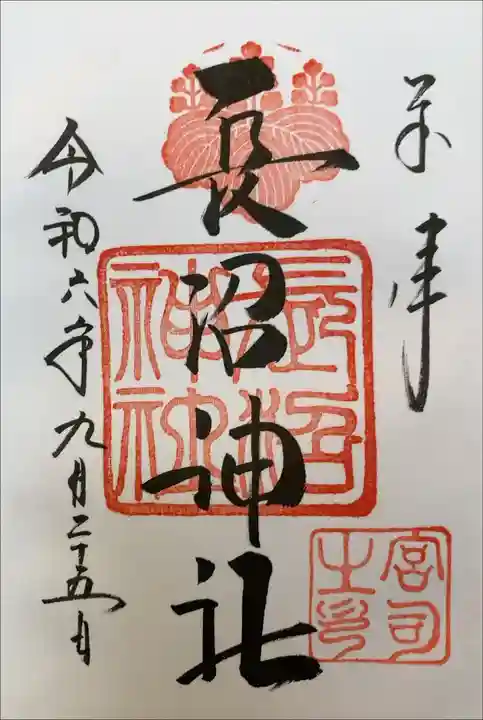 奉拝
長沼神社
長沼神社
宮司之印
令和六年九月二十五日